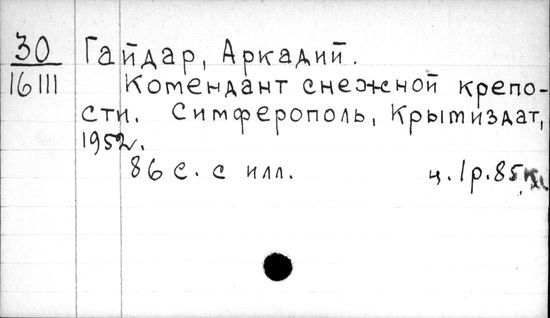 30 Гайдар, Аркадий.
16111 Комендант снежной крепо-
сти. Симферополь, Крымиздат,
1952.
86 с. с илл. ц. 1р.85к.